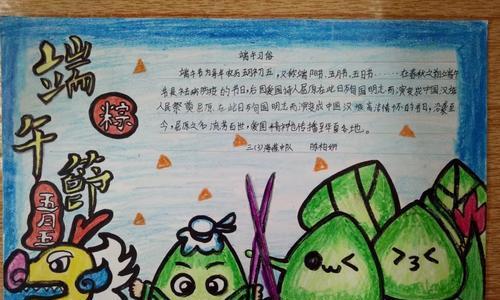 端午節
粽
五月五
端午习俗
端午节为每年农历五月初五，又称端阳节、五月节、五日节……在春秋之前端午
节是祛病防疫的节日，后因爱国诗人屈原在此日抱国明志而演变成中国汉族
人民祭奠屈原、在此日抱国明志而演变成中国汉族高洁情怀的节日，沿袭至
今，屈原之名流芳百世，爱国精神也传播至华夏各地。
三(3)海燕中队